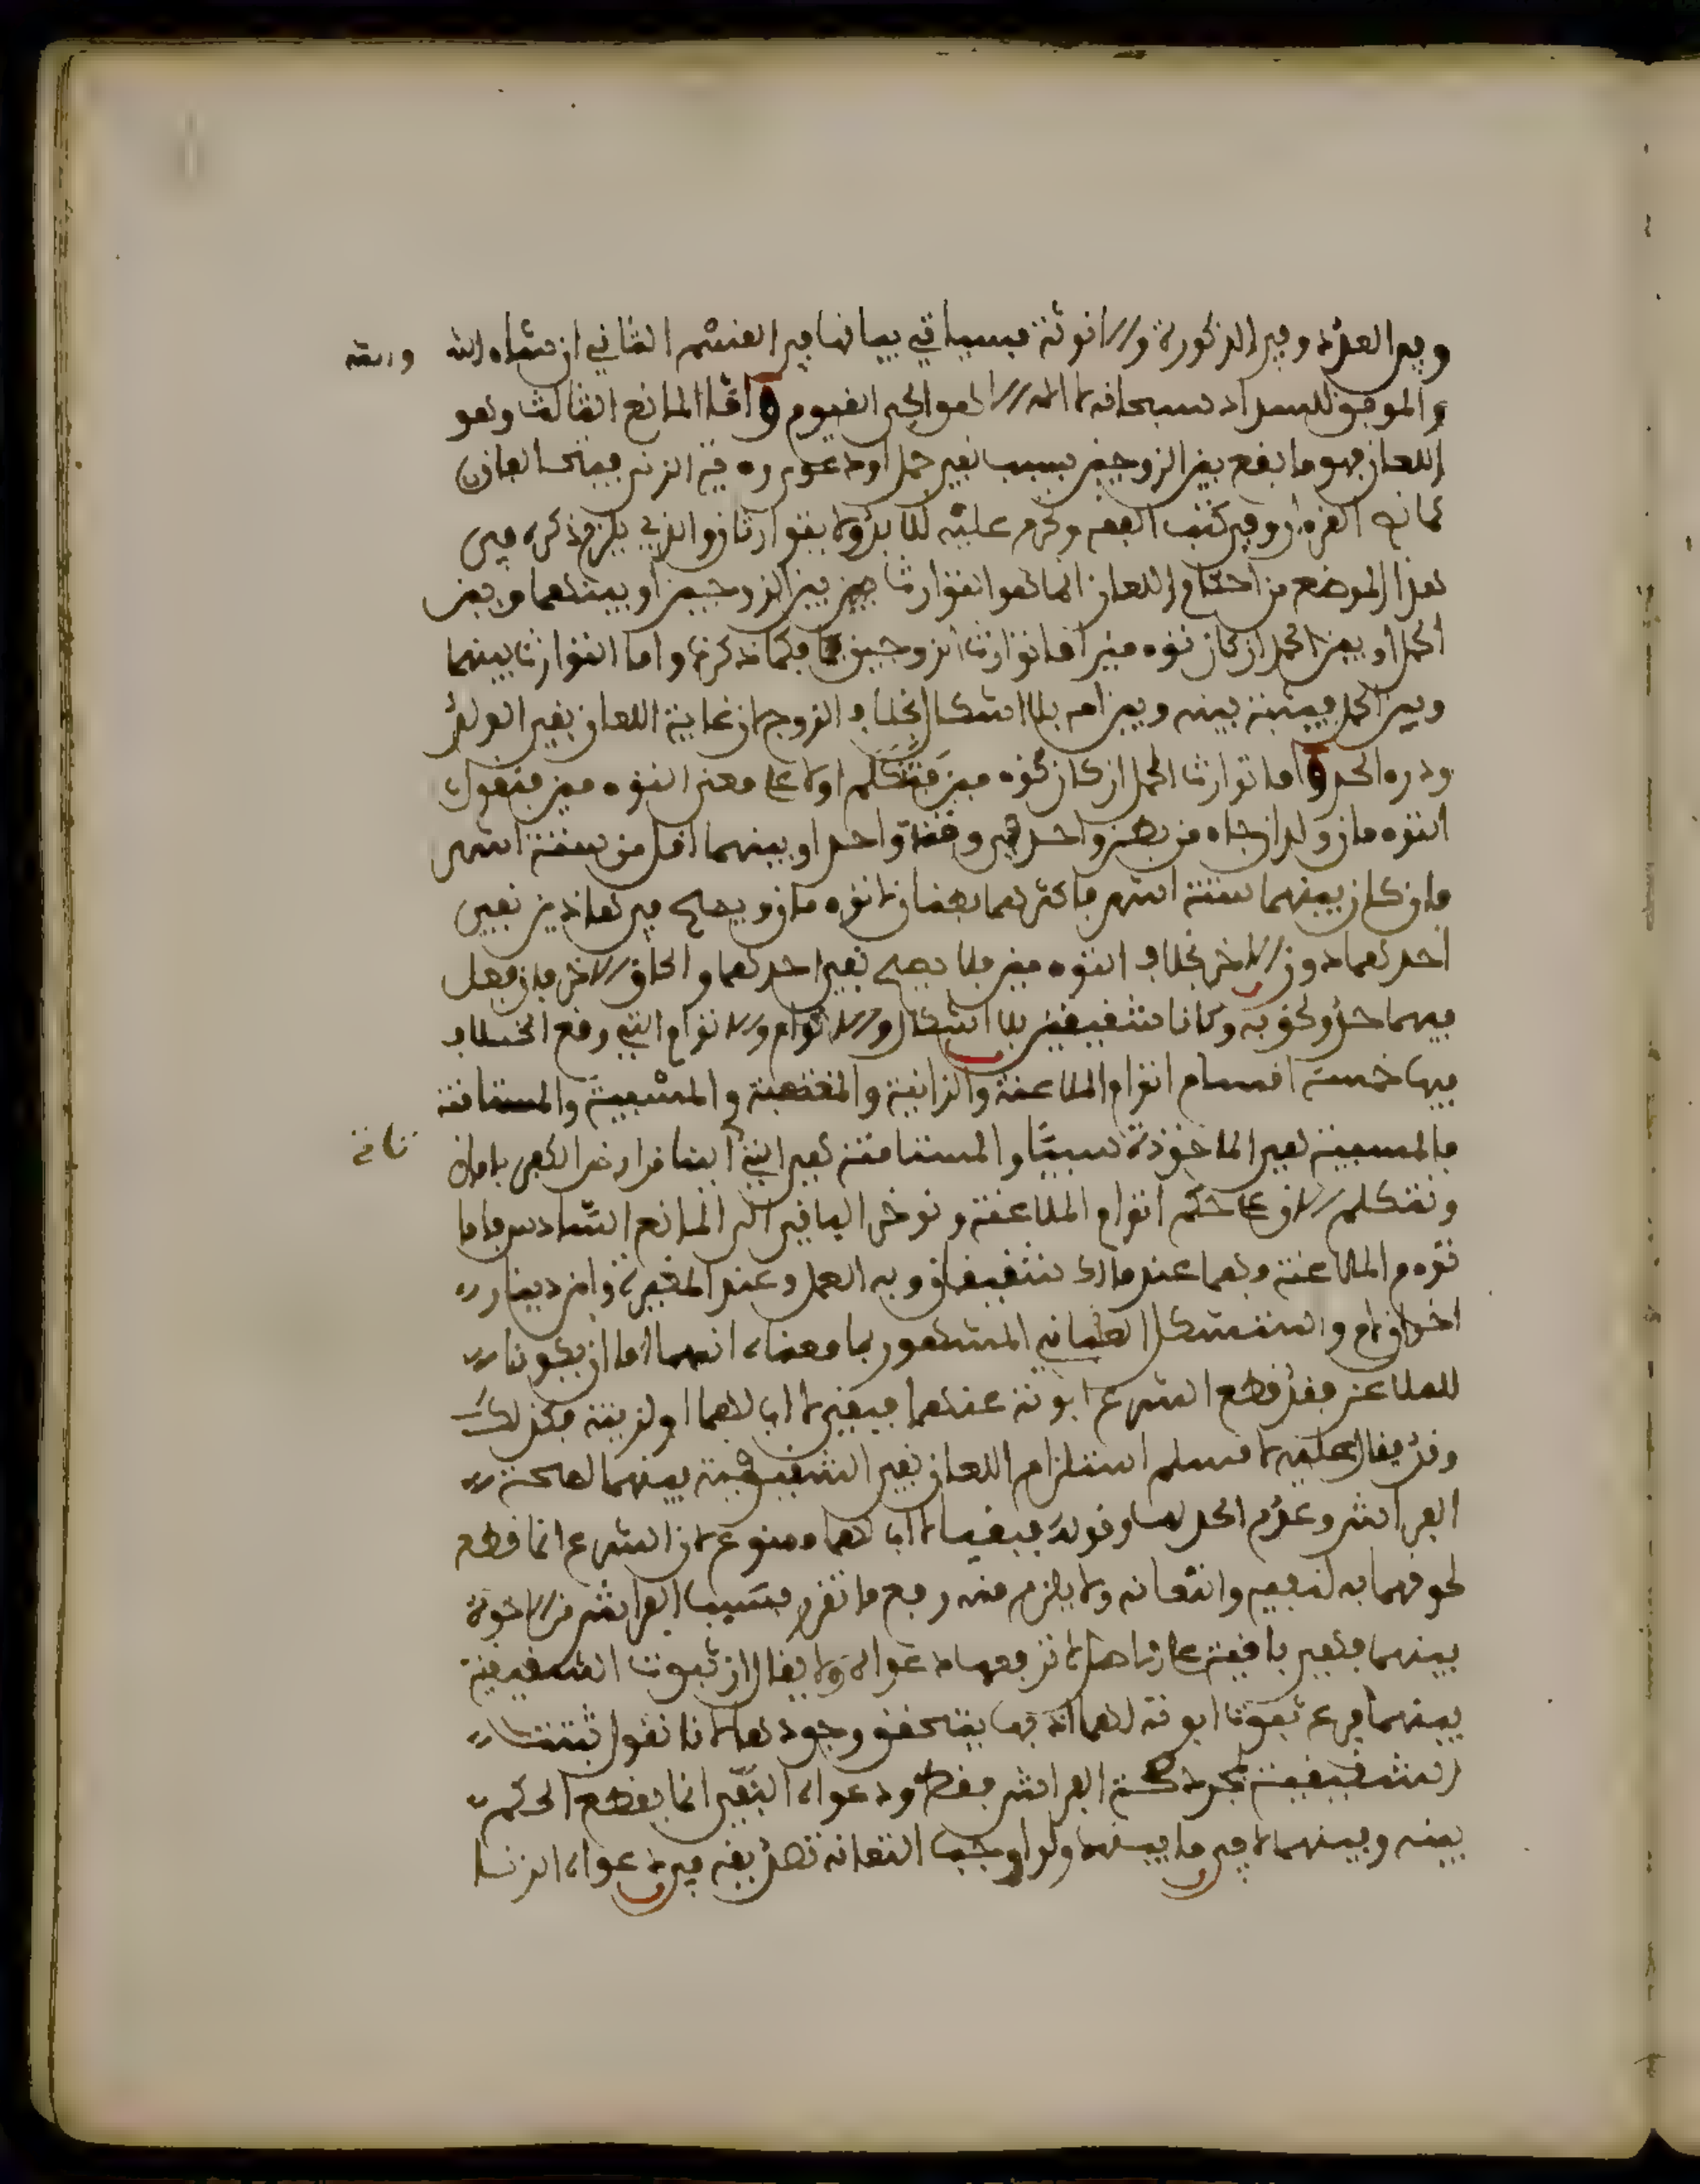 وفي العدد وفي الذكورة والانوثة فسياتي بيانها في القسم الثاني ان شاء الله
والموفق للسداد سبحانه لا اله الا هو الحي القيوم واما المانع الثالث وهو
اللعان فهو ما يقع بين الزوجين بسبب نفي حمل او دعوى رؤية الزنى فيتلاعنان
كما في القرءان وفي كتب الفقه وتحرم عليه للابد ولا يتوارثان والذي يلزم ذكره في
هذا الموضع من احكام اللعان انما هو التوارث بين الزوجين او بينهما وبين
الحمل او بين الحمل ان كان توءمين اما توارث الزوجين فكما ذكرنا واما التوارث بينهما
وبين الحمل فيثبت بينه وبين امه بلا اشكال بخلاف الزوج لان غاية اللعان نفي الولد
ودرء الحد واما توارث الحمل ان كان توءمين فنتكلم اولا على معنى التوءمين فنقول
التوءمان ولدان جاء من بطن واحد في وقت واحد او بينهما اقل من ستة اشهر
فان كان بينهما ستة اشهر فاكثر فهما بطنان لا توءمان ويصح في هاذين نفي
احدهما دون الاخر بخلاف التوءمين فلا يصح نفي احدهما والحاق الاخر فان فعل
فيهما حد ولحق به وكانا شقيقين بلا اشكال والاتوام التي وقع الخلاف
فيها خمسة اقسام اتوام الملاعنة والزانية والمغتصبة والمسبية والمستامنة
فالمسبية هي الماخوذة سبيا والمستامنة هي التي اتتنا من ارض الكفر بامان
ونتكلم الان على حكم اتوام الملاعنة ونوخر الباقي الى المانع السادس فاما
توءما الملاعنة فهما عند مالك شقيقان وبه العمل وعند المغيرة وابن دينار
اخوان لام واستشكل العقباني المشهور بما معناه انهما اما ان يكونا
للملاعن فقد قطع الشرع ابوته عنهما فبقي لا اب لهما او لزنية فكذلك
وقد يقال عليه لا نسلم استلزام اللعان نفي الشقيقية بينهما لصحة
الفراش وعدم الحد لها وقوله فبقيا لا اب لهما ممنوع لان الشرع انما قطع
لحوقهما به لنفيه والتعانه ولا يلزم منه رفع ما تقرر بسبب الفراش من الاخوة
بينهما فتبقى باقية على اصلها لا ترفعها دعواه ولا يقال ان ثبوت الشقيقية
بينهما فرع ثبوت ابوته لهما اذ بها يتحقق وجودها لانا نقول ثبتت
الشقيقية بمجرد صحة الفراش فقط ودعواه النفي انما يقطع الحكم
بينه وبينهما لا في ما بينهما ولو اوجب التعانه تصديقه في دعواه الزنا